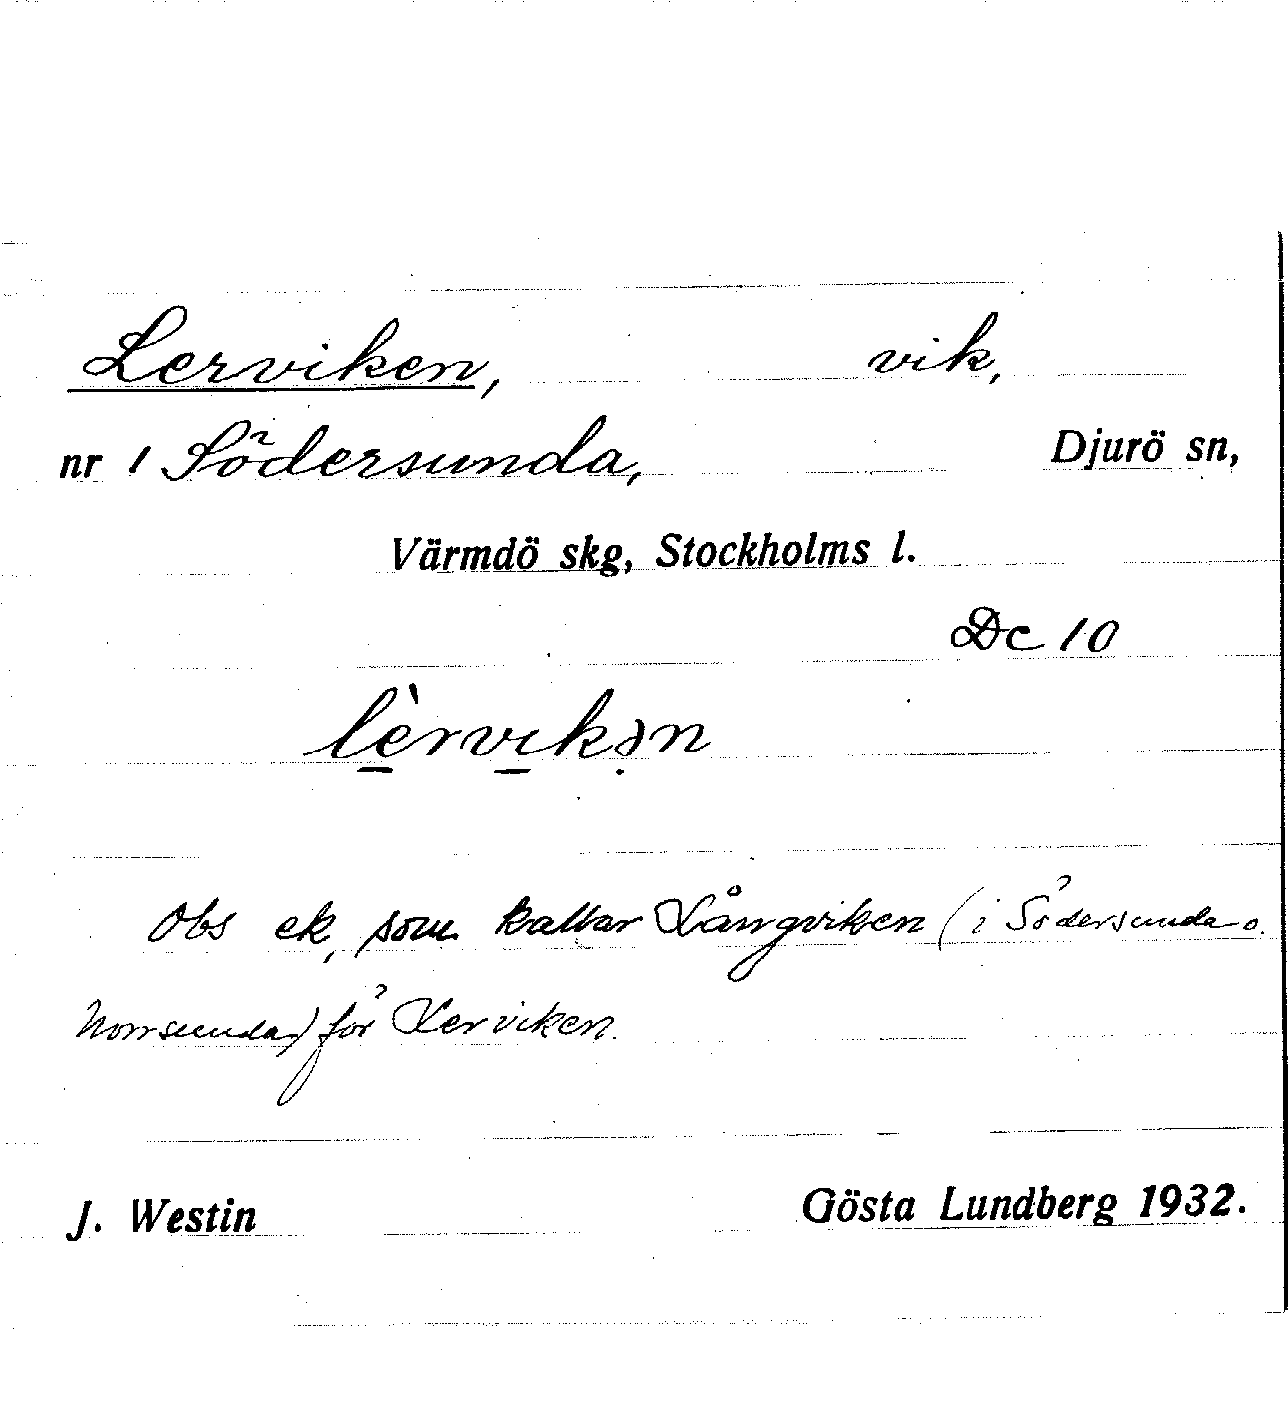 Lerviken, vik,
nr 1 Södersunda, Djurö sn,
Värmdö skg, Stockholms l.
Dc 10
lèrvikən
Obs ek, som kallar Långviken (i Södersunda o.
Norrsunda) för Lerviken.
J. Westin Gösta Lundberg 1932.